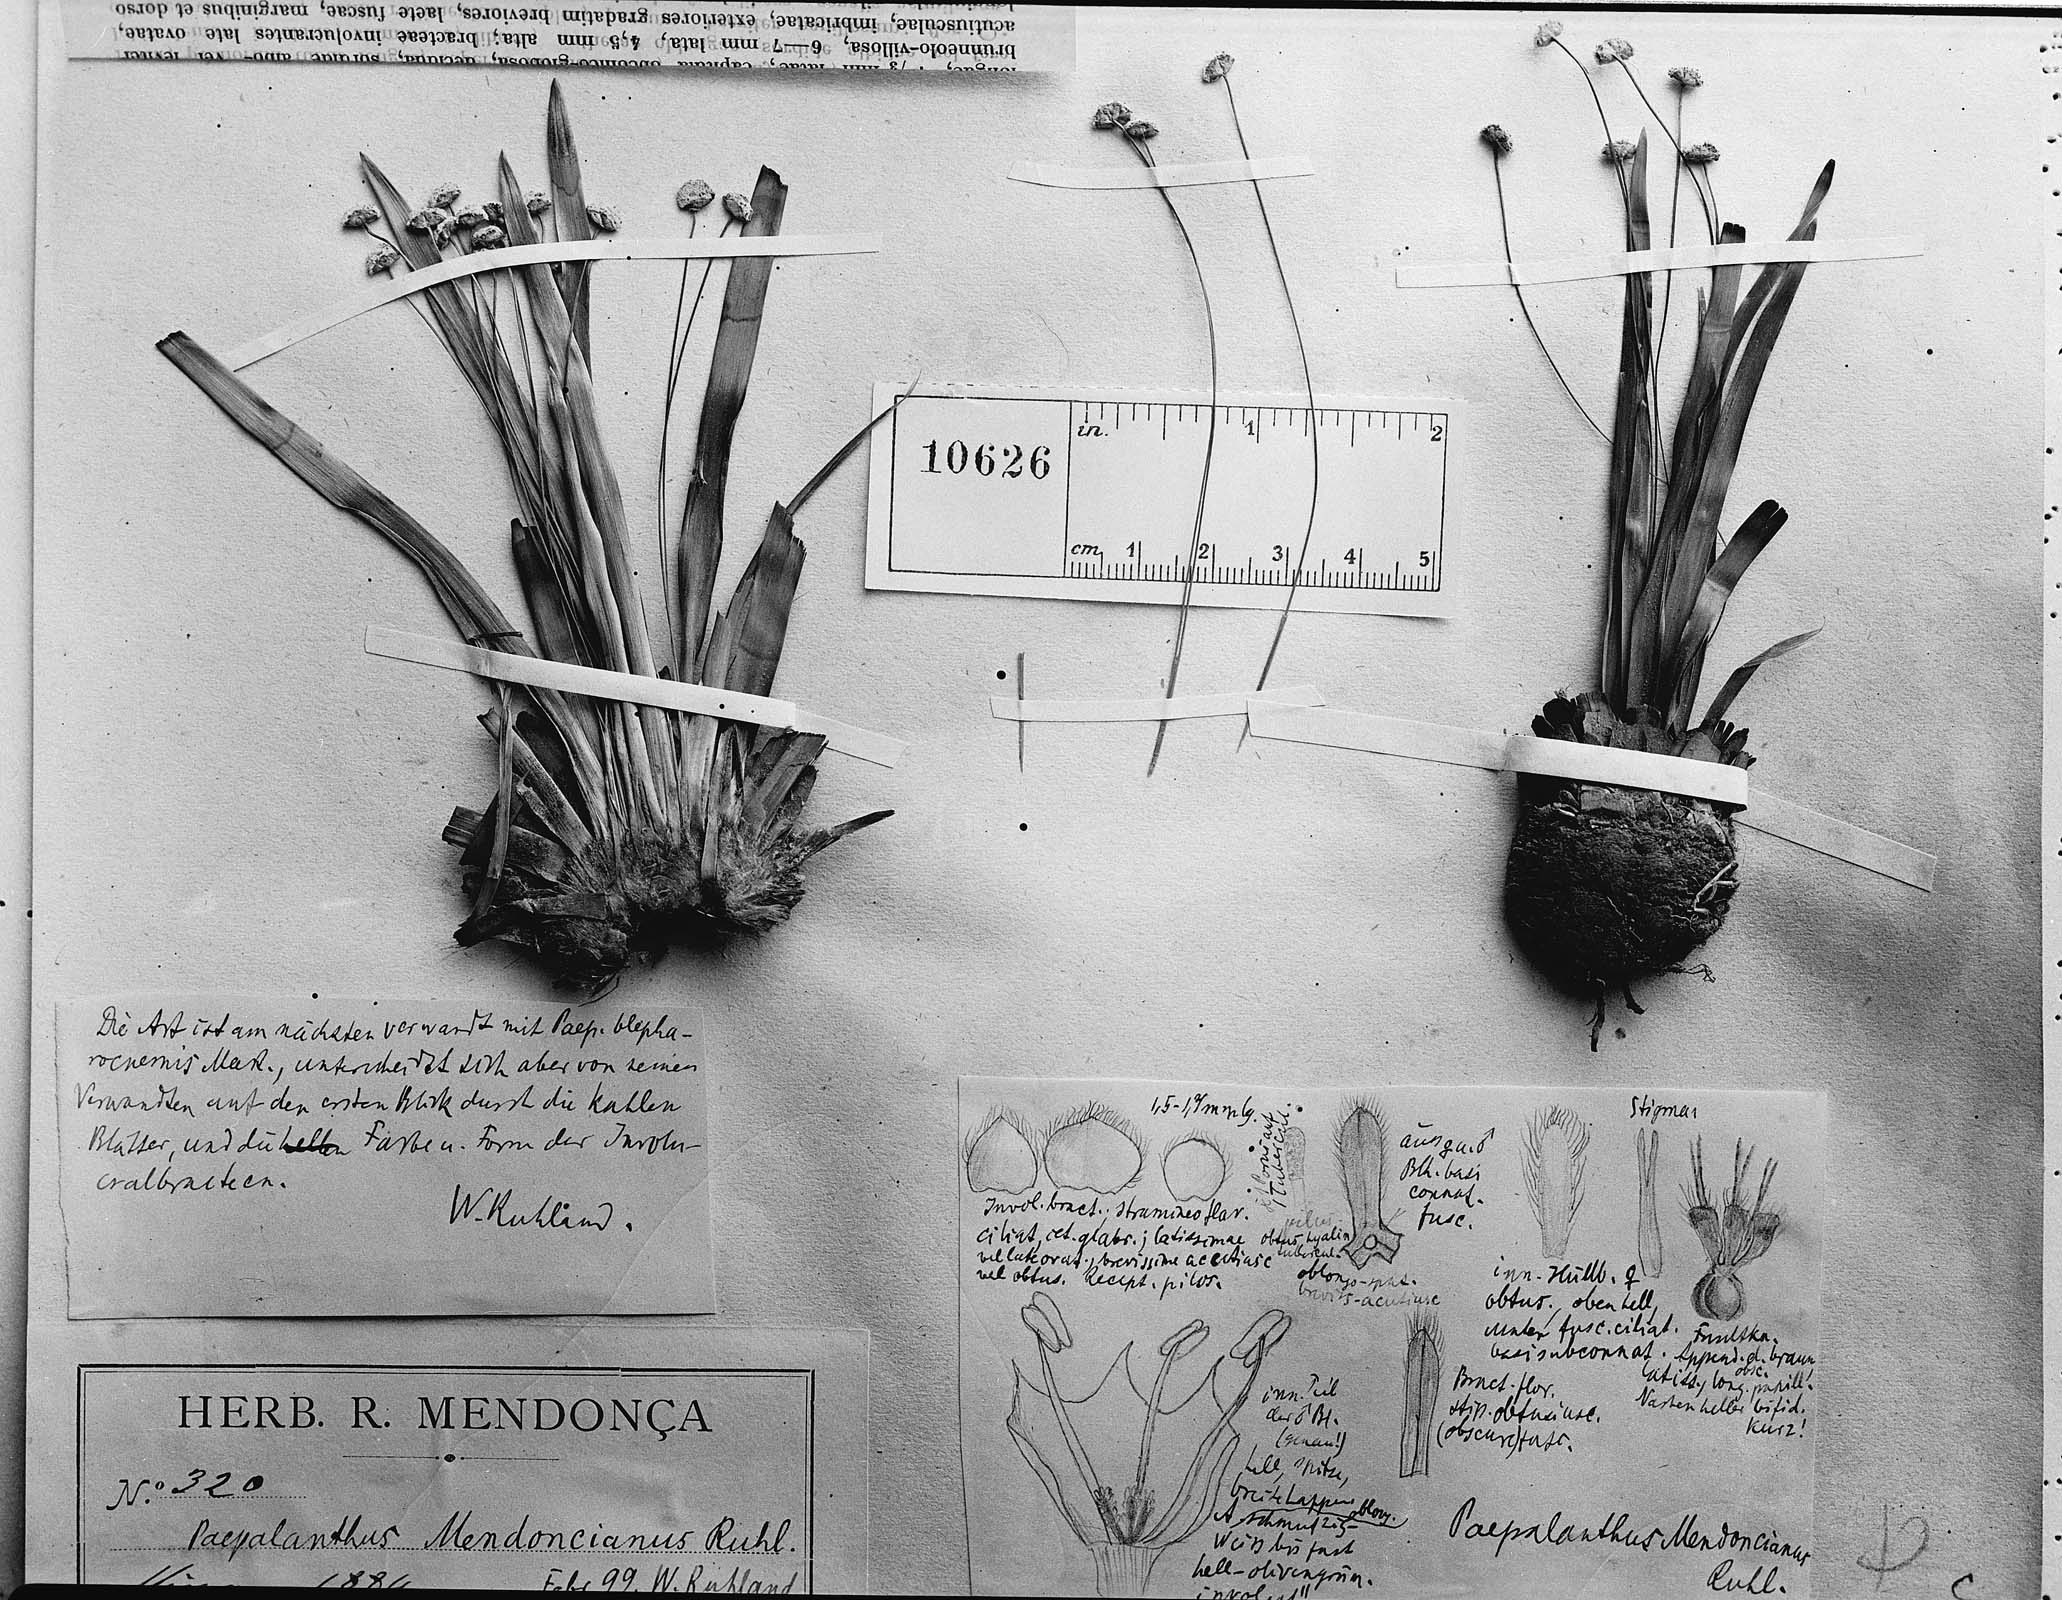 brunneolo-villosa, 6—7 mm lata, 4,5 mm alta; bracteae involucrantes late ovatae,
acutiusculae, imbricatae, exteriores gradatim breviores, laete fuscae, marginibus et dorso
10626
in. 1 2
cm 1 2 3 4 5
Die Art ist am nächsten verwandt mit Paep. blepha-
rocnemis Mart., unterscheidet sich aber von seinen
Verwandten auf den ersten Blick durch die kahlen
Blätter, und die Farbe u. Form der Involu-
cralbracteen.
W. Ruhland.
HERB. R. MENDONÇA
N.º 320
Paepalanthus Mendoncianus Ruhl.
1884 Febr 99. W. Ruhland
1,5-1,8 mm lg.
Invol. bract. stramineo flav.
ciliat, cet. glabr.; latissimae
vel late ovat., brevissime acutiusc
vel obtus. Recept. pilos.
äuss
Blh. basi
connat.
fusc.
obtus, hyalin
tubercul.
oblongo-spat.
brevis-acutiusc
Stigmas
inn. Hüllb. ♀
obtus., oben hell,
unten fusc. ciliat.
basi subconnat.
Fruchtkn.
Append. d. braun,
latiss., long. papill.
Narben heller bifid.
kurz!
Bract. flor.
obtusiusc.
(obscure) fusc.
inn. Teil
der ♂ Bl.
(genau!)
hell, spitze,
breite Lappen
A. schmutzig-
oblong.
weiss bis fast
hell-olivengrün.
Paepalanthus Mendoncianus
Ruhl.
C